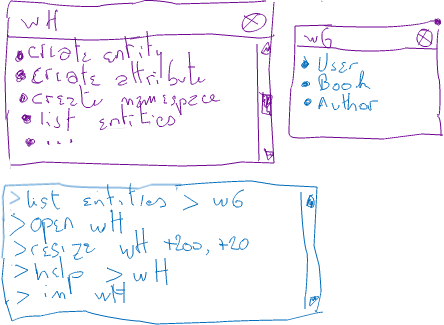 wH
• create entity
• create attribute
• create namespace
• list entities
• ...
w6
• User
• Book
• Author
> list entities > w6
> open wH
> resize wH +200, +20
> help > wH
> inf wH